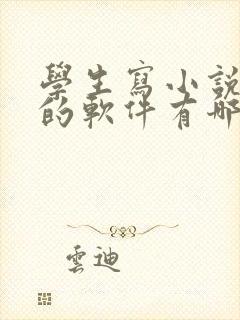 學生寫小說
的軟件有哪
雲迪